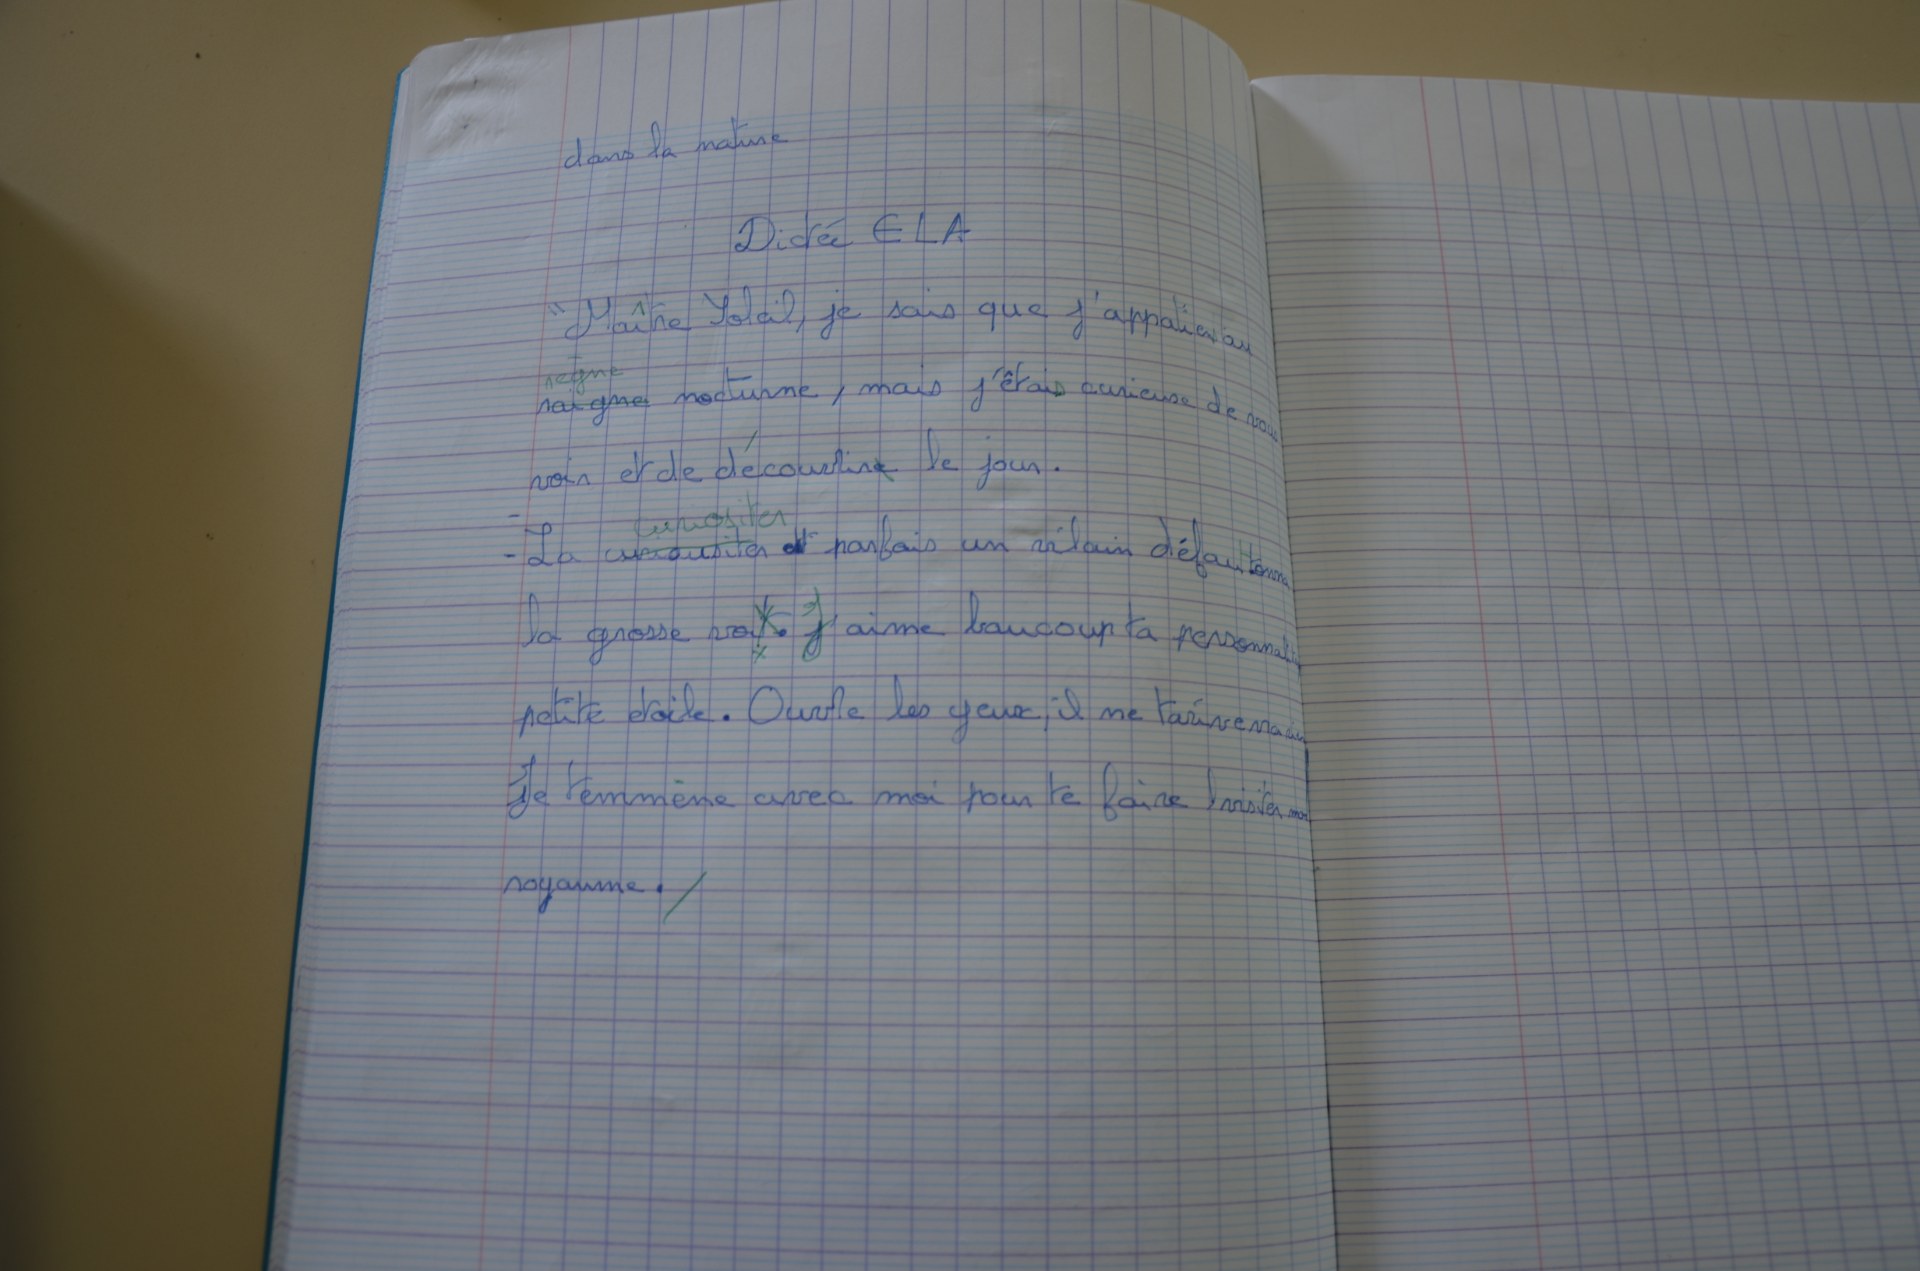 dans la nature
Dictée ELA
"Maître Soleil, je sais que j'appatien au
reigne
raigne nocturne, mais j'étais curieuse de vous
voir et de découvrire le jour.
curiositer
- La curousiter et parfais un vilain défaut tonna
la grosse voix. J'aime baucoup ta personnalité
petite étoile. Ouvre les yeux, il ne t'arivera
Je t'emmène avec moi pour te faire visiter mon
royaume.